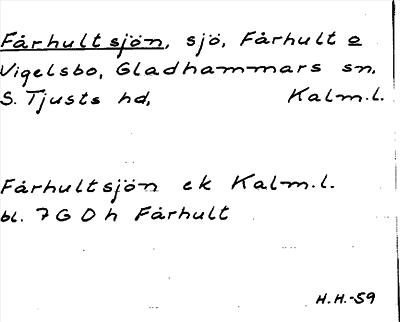 Fårhultsjön, sjö, Fårhult o
Vigelsbo, Gladhammars sn,
S. Tjusts hd, Kalm.l.
Fårhultsjön ek Kalm.l.
bl. 7 G O h Fårhult
H.H.-59